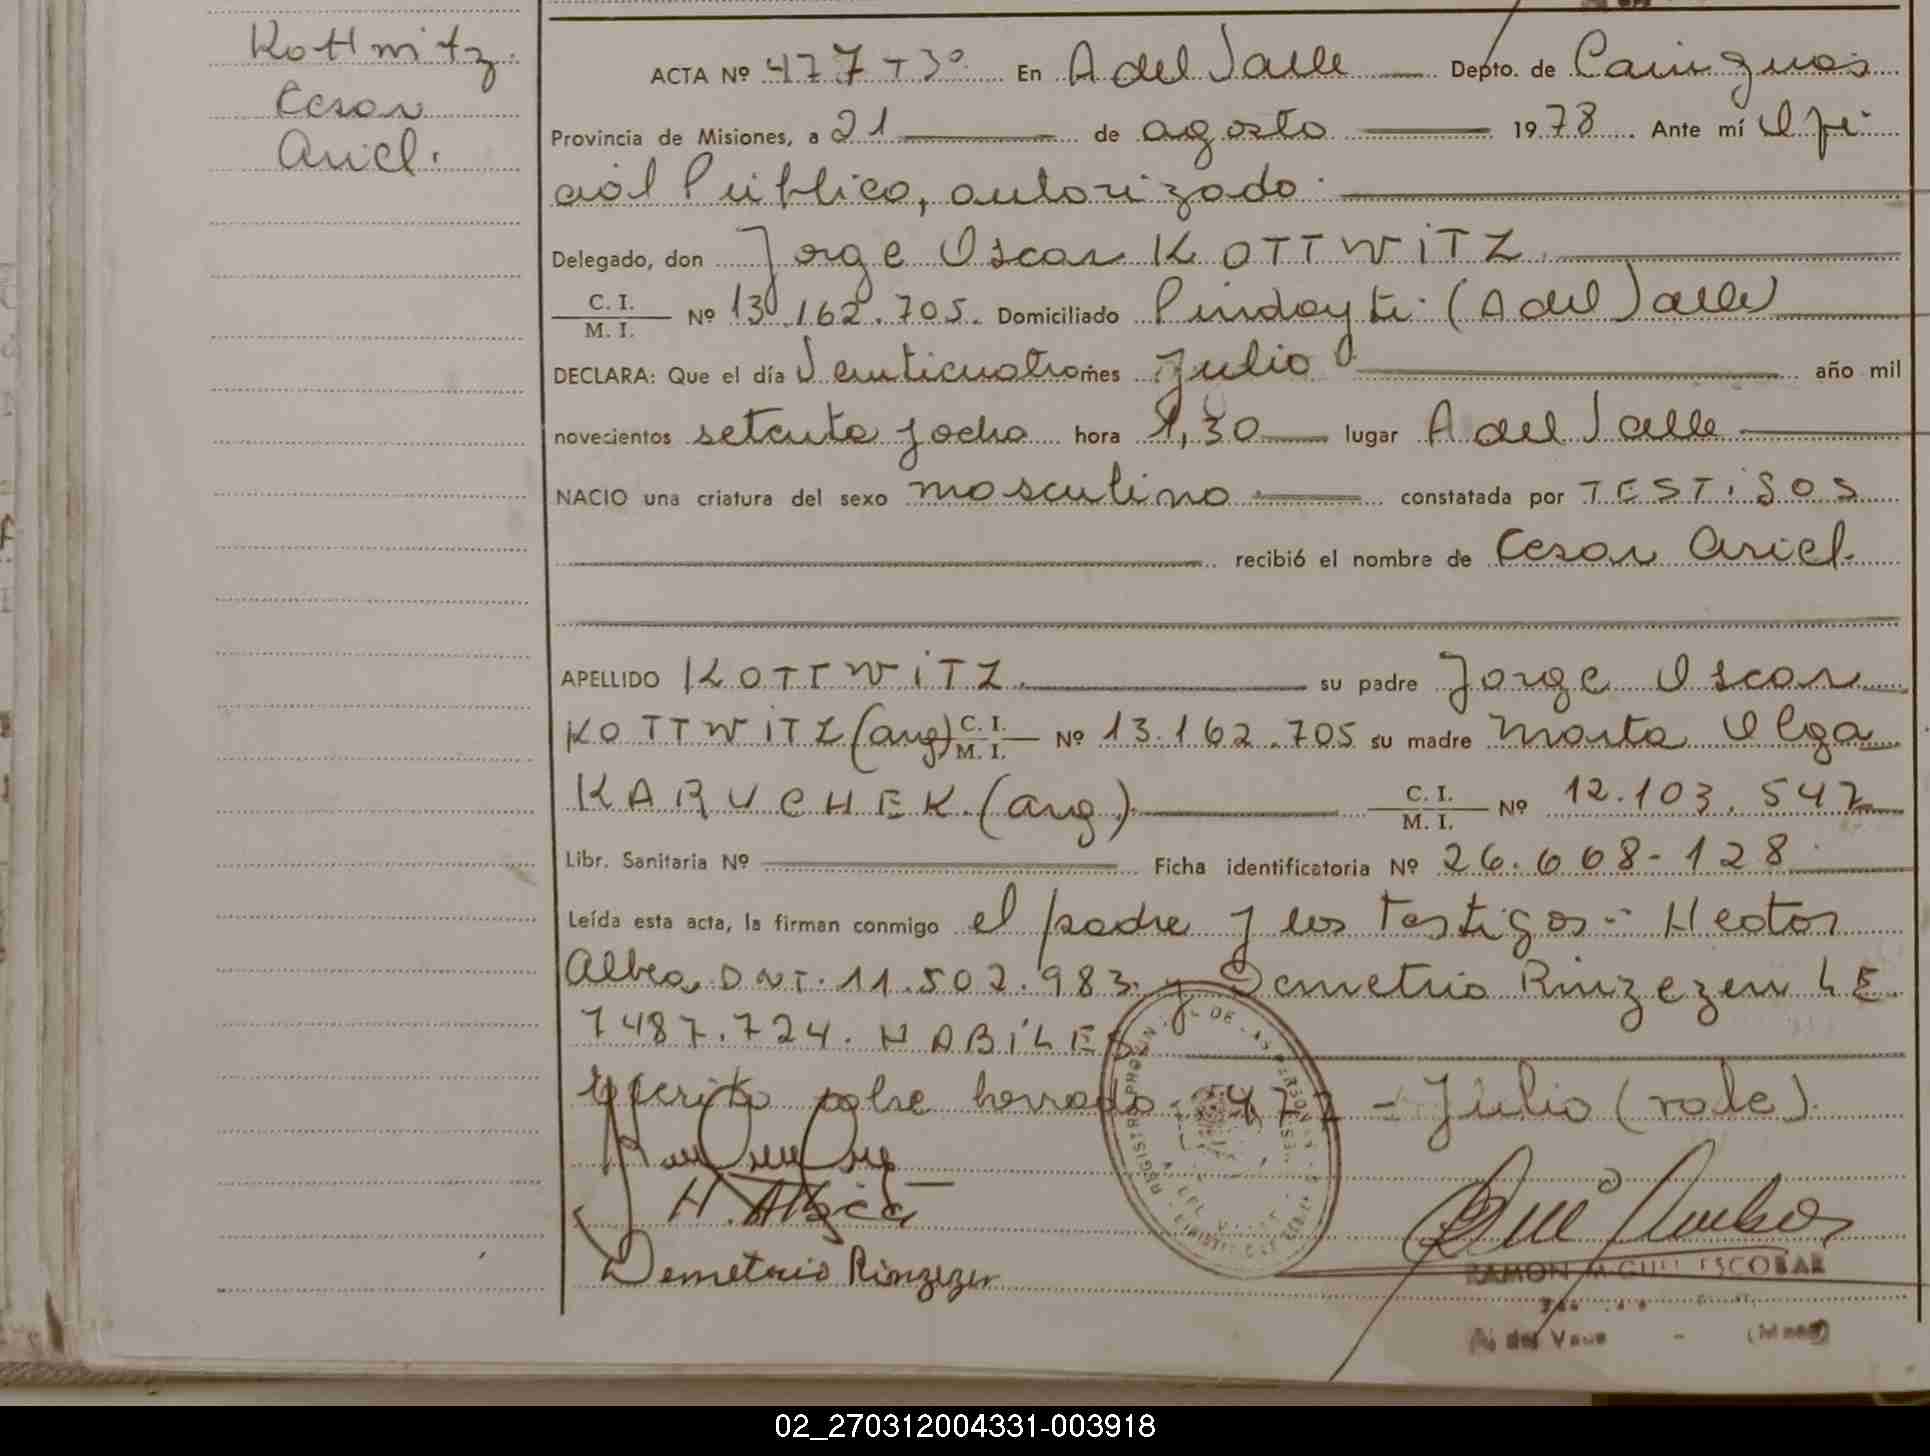 Kottwitz.
Cesar
Ariel.
ACTA Nº 477 T 3º En A del Valle Depto. de Cainguas
Provincia de Misiones, a 21 de agosto 1978 Ante mí Ofi-
cial Público, autorizado.
Delegado, don Jorge Oscar KOTTWiTZ.
C. I.
M. I. Nº 13.162.705. Domiciliado Pindayti (A del Valle)
DECLARA: Que el día Venticuatro mes Julio año mil
novecientos setenta y ocho hora 1,30 lugar A del Valle
NACIO una criatura del sexo masculino constatada por TESTiGOS
recibió el nombre de Cesar Ariel.
APELLIDO KOTTWiTZ. su padre Jorge Oscar
KOTTWiTZ (arg) C. I. M. I. Nº 13.162.705 su madre Marta Olga
KARUCHEK. (arg.) C. I. M. I. Nº 12.103.547
Libr. Sanitaria Nº Ficha identificatoria Nº 26.668-128
Leída esta acta, la firman conmigo el padre y los Testigos - Hector
DNI. 11.502.983. y Demetrio Rinzezen LE
7487.724. HABiLES.
Escrito sobre borrado. 477 - Julio (vale).
Demetrio Rinzezen
RAMON MIGUEL ESCOBAR
A. del Valle - (Mnes)
02_270312004331-003918